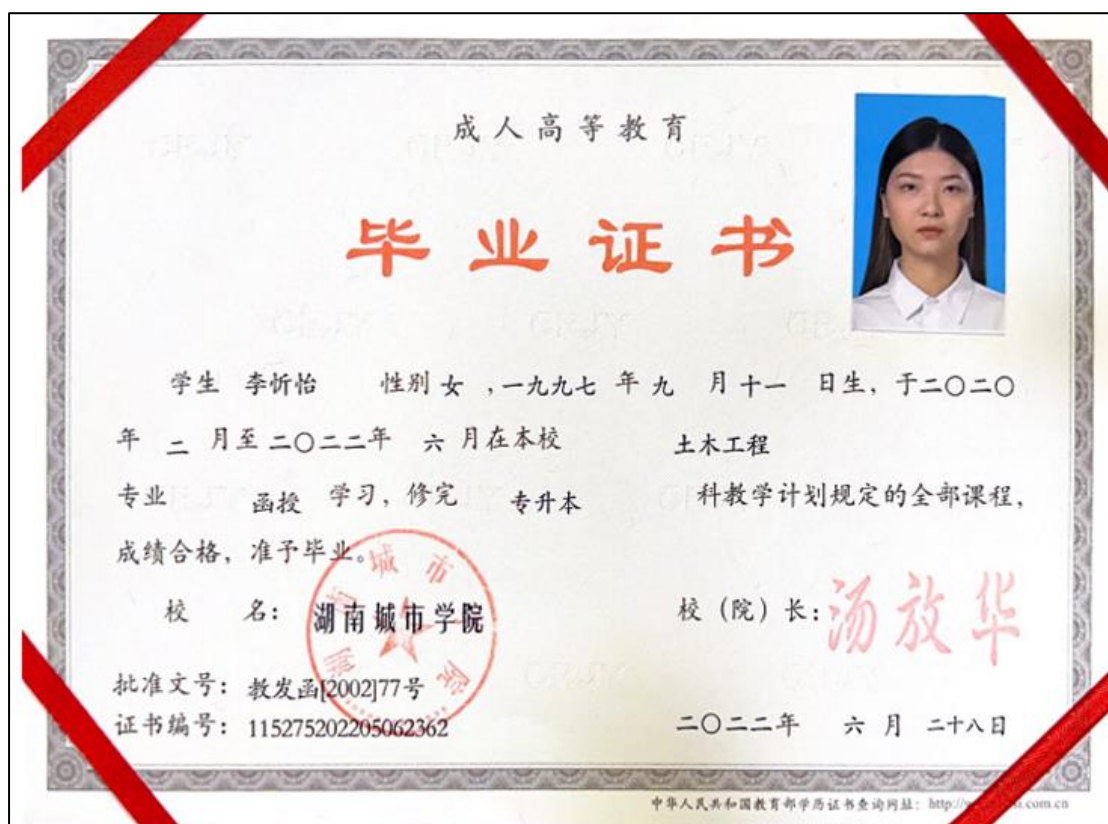 成人高等教育
毕业证书
学生 李忻怡 性别 女 ,一九九七 年 九 月 十一 日生，于二〇二〇
年 二 月至 二〇二二年 六 月在本校 土木工程
专业 函授 学习，修完 专升本 科教学计划规定的全部课程，
成绩合格，准予毕业。
湖南城市学院
校 名： 湖南城市学院 校（院）长：汤放华
批准文号：教发函[2002]77号
证书编号：115275202205062362 二〇二二年 六 月 二十八日
中华人民共和国教育部学历证书查询网址：http://w com.cn